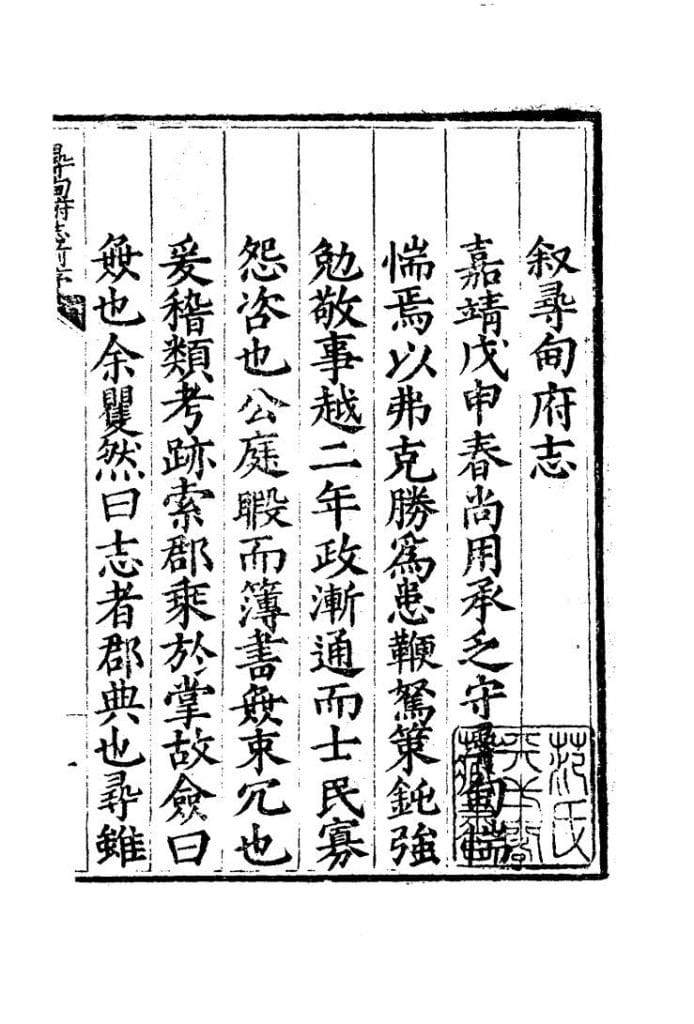 叙尋甸府志
嘉靖戊申春尚用承乏守尋甸惴
惴焉以弗克勝爲患鞭駑策鈍強
勉敬事越二年政漸通而士民寡
怨咨也公庭暇而簿書無束冗也
爰稽類考跡索郡乘於掌故僉曰
無也余矍然曰志者郡典也尋雖
尋甸府志前序
范氏
天一閣
藏書